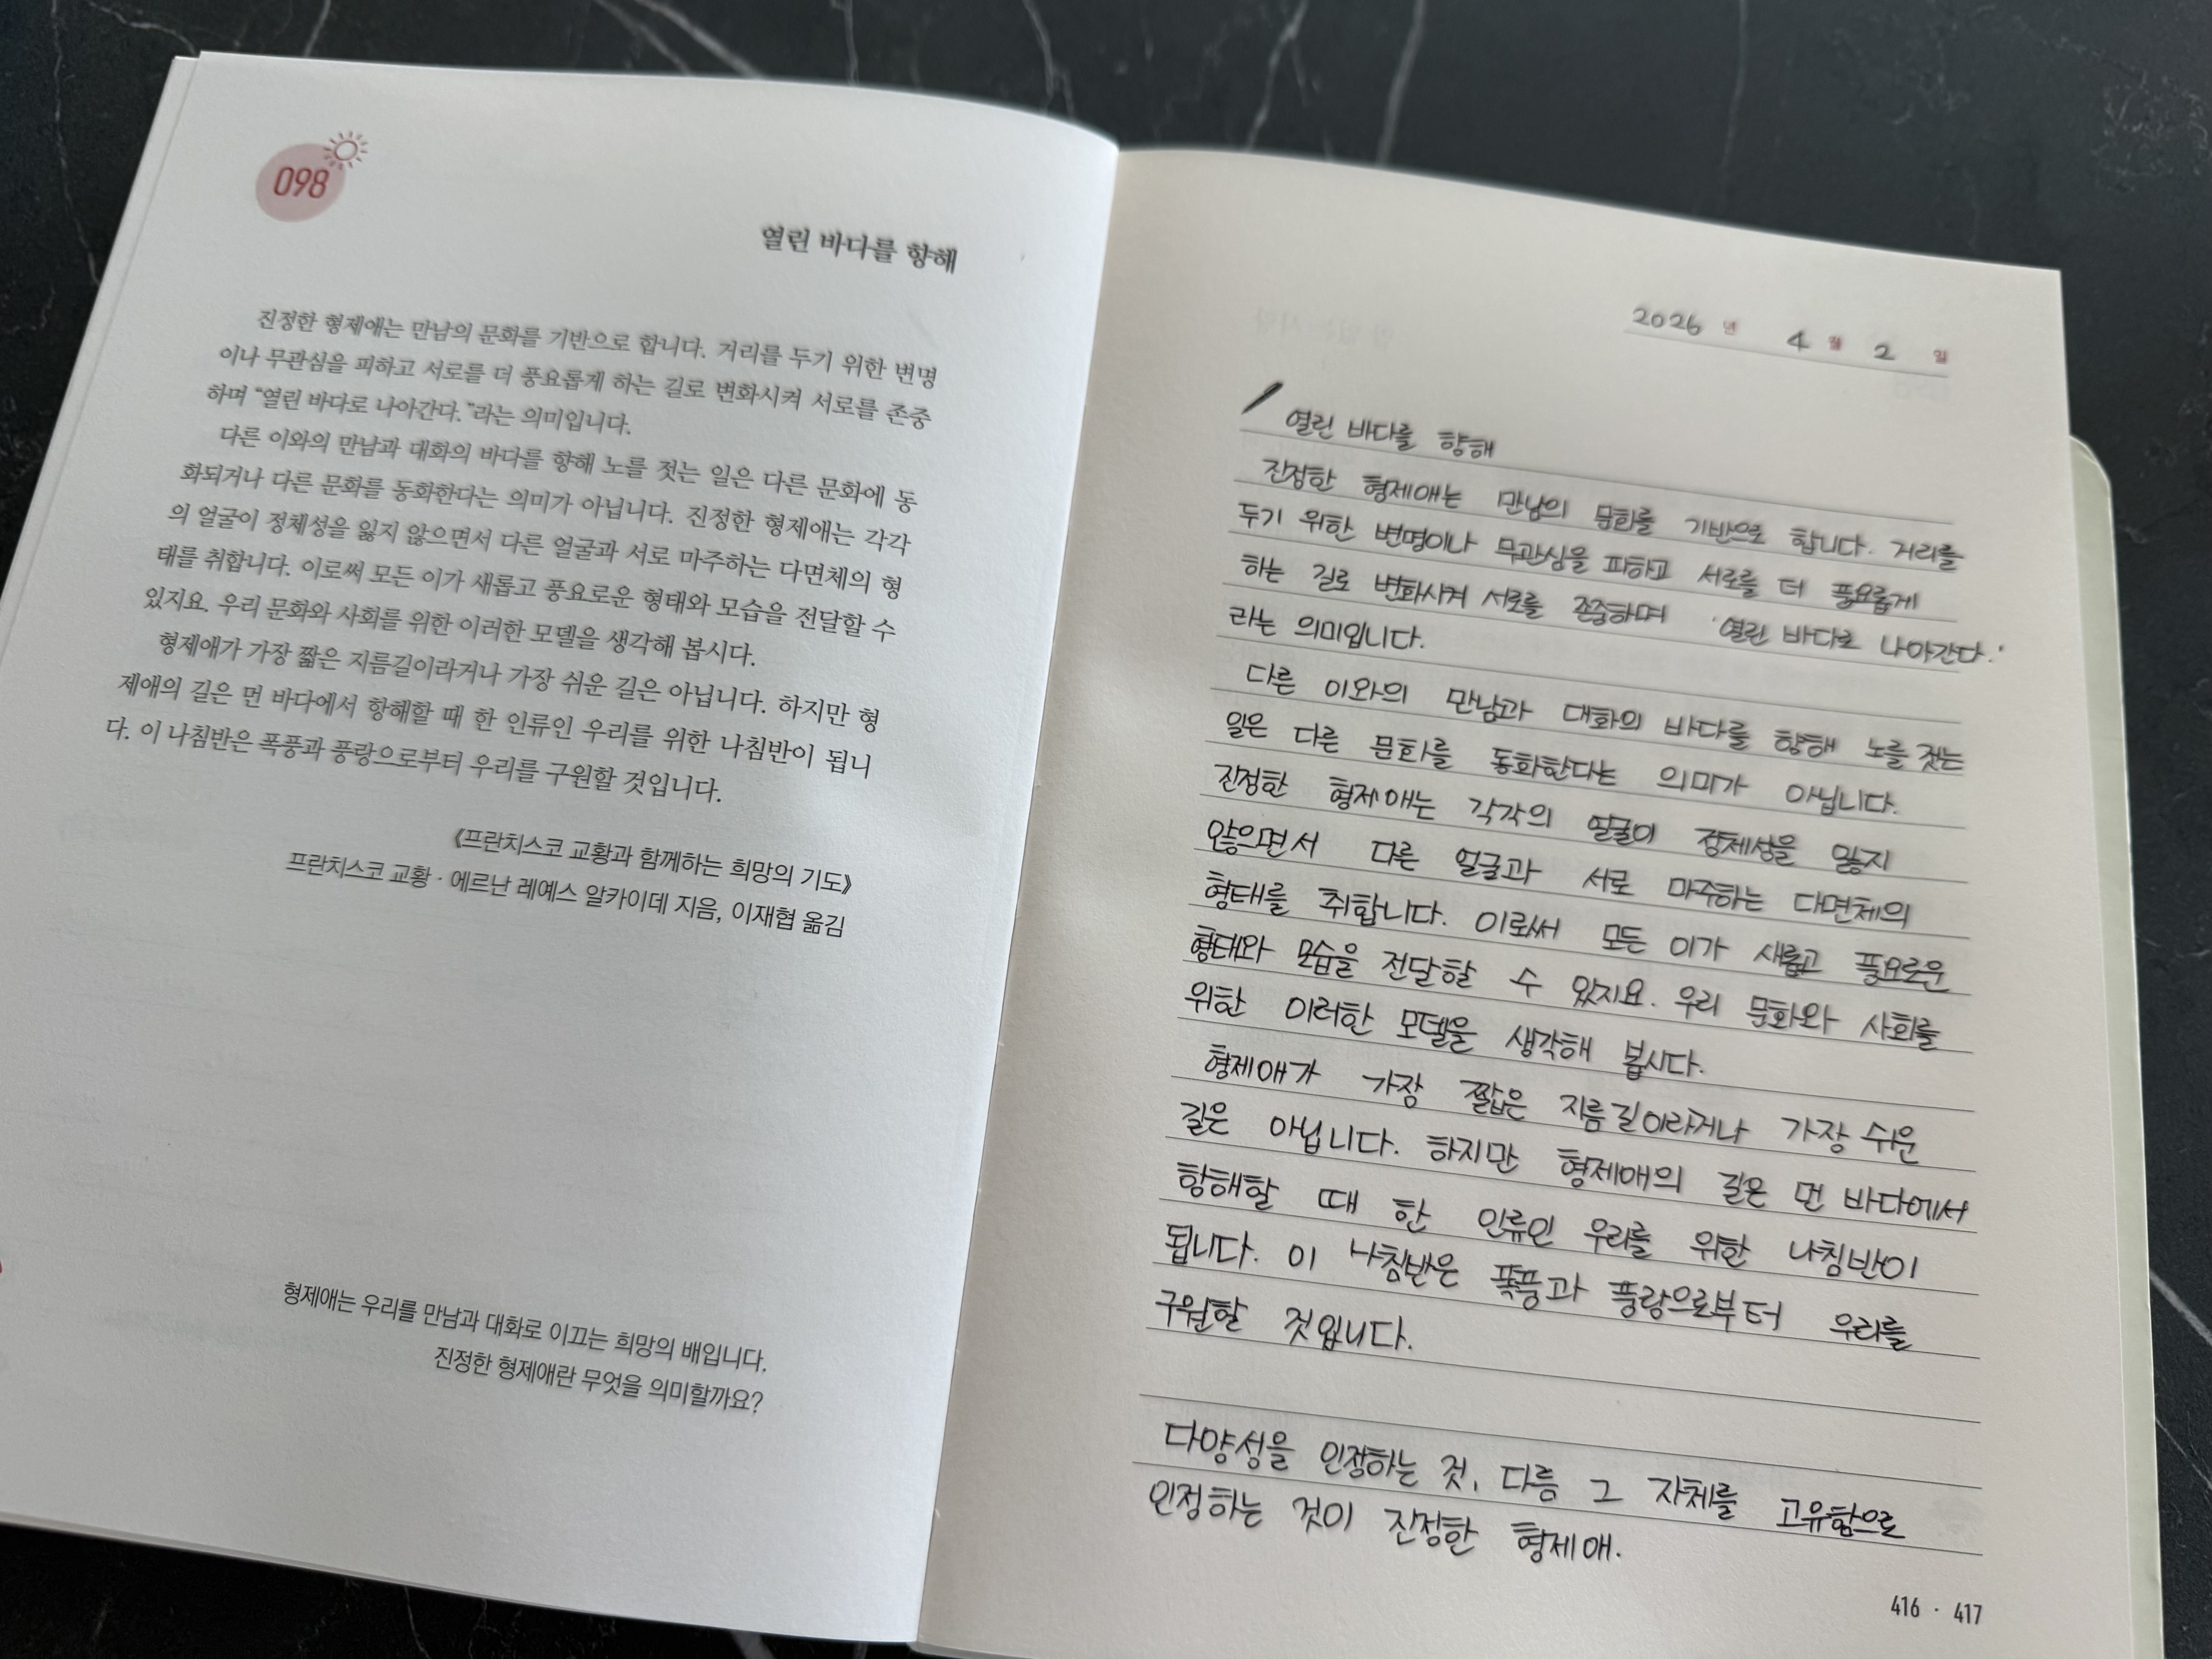 098
열린 바다를 향해
진정한 형제애는 만남의 문화를 기반으로 합니다. 거리를 두기 위한 변명
이나 무관심을 피하고 서로를 더 풍요롭게 하는 길로 변화시켜 서로를 존중
하며 “열린 바다로 나아간다.”라는 의미입니다.
다른 이와의 만남과 대화의 바다를 향해 노를 젓는 일은 다른 문화에 동
화되거나 다른 문화를 동화한다는 의미가 아닙니다. 진정한 형제애는 각각
의 얼굴이 정체성을 잃지 않으면서 다른 얼굴과 서로 마주하는 다면체의 형
태를 취합니다. 이로써 모든 이가 새롭고 풍요로운 형태와 모습을 전달할 수
있지요. 우리 문화와 사회를 위한 이러한 모델을 생각해 봅시다.
형제애가 가장 짧은 지름길이라거나 가장 쉬운 길은 아닙니다. 하지만 형
제애의 길은 먼 바다에서 항해할 때 한 인류인 우리를 위한 나침반이 됩니
다. 이 나침반은 폭풍과 풍랑으로부터 우리를 구원할 것입니다.
《프란치스코 교황과 함께하는 희망의 기도》
프란치스코 교황 · 에르난 레예스 알카이데 지음, 이재협 옮김
형제애는 우리를 만남과 대화로 이끄는 희망의 배입니다.
진정한 형제애란 무엇을 의미할까요?
2026 년 4 월 2 일
열린 바다를 향해
진정한 형제애는 만남의 문화를 기반으로 합니다. 거리를
두기 위한 변명이나 무관심을 피하고 서로를 더 풍요롭게
하는 길로 변화시켜 서로를 존중하며 '열린 바다로 나아간다.'
라는 의미입니다.
다른 이와의 만남과 대화의 바다를 향해 노를 젓는
일은 다른 문화를 동화한다는 의미가 아닙니다.
진정한 형제애는 각각의 얼굴이 정체성을 잃지
않으면서 다른 얼굴과 서로 마주하는 다면체의
형태를 취합니다. 이로써 모든 이가 새롭고 풍요로운
형태와 모습을 전달할 수 있지요. 우리 문화와 사회를
위한 이러한 모델을 생각해 봅시다.
형제애가 가장 짧은 지름길이라거나 가장 쉬운
길은 아닙니다. 하지만 형제애의 길은 먼 바다에서
항해할 때 한 인류인 우리를 위한 나침반이
됩니다. 이 나침반은 폭풍과 풍랑으로부터 우리를
구원할 것입니다.
다양성을 인정하는 것, 다름 그 자체를 고유함으로
인정하는 것이 진정한 형제애.
416 · 417